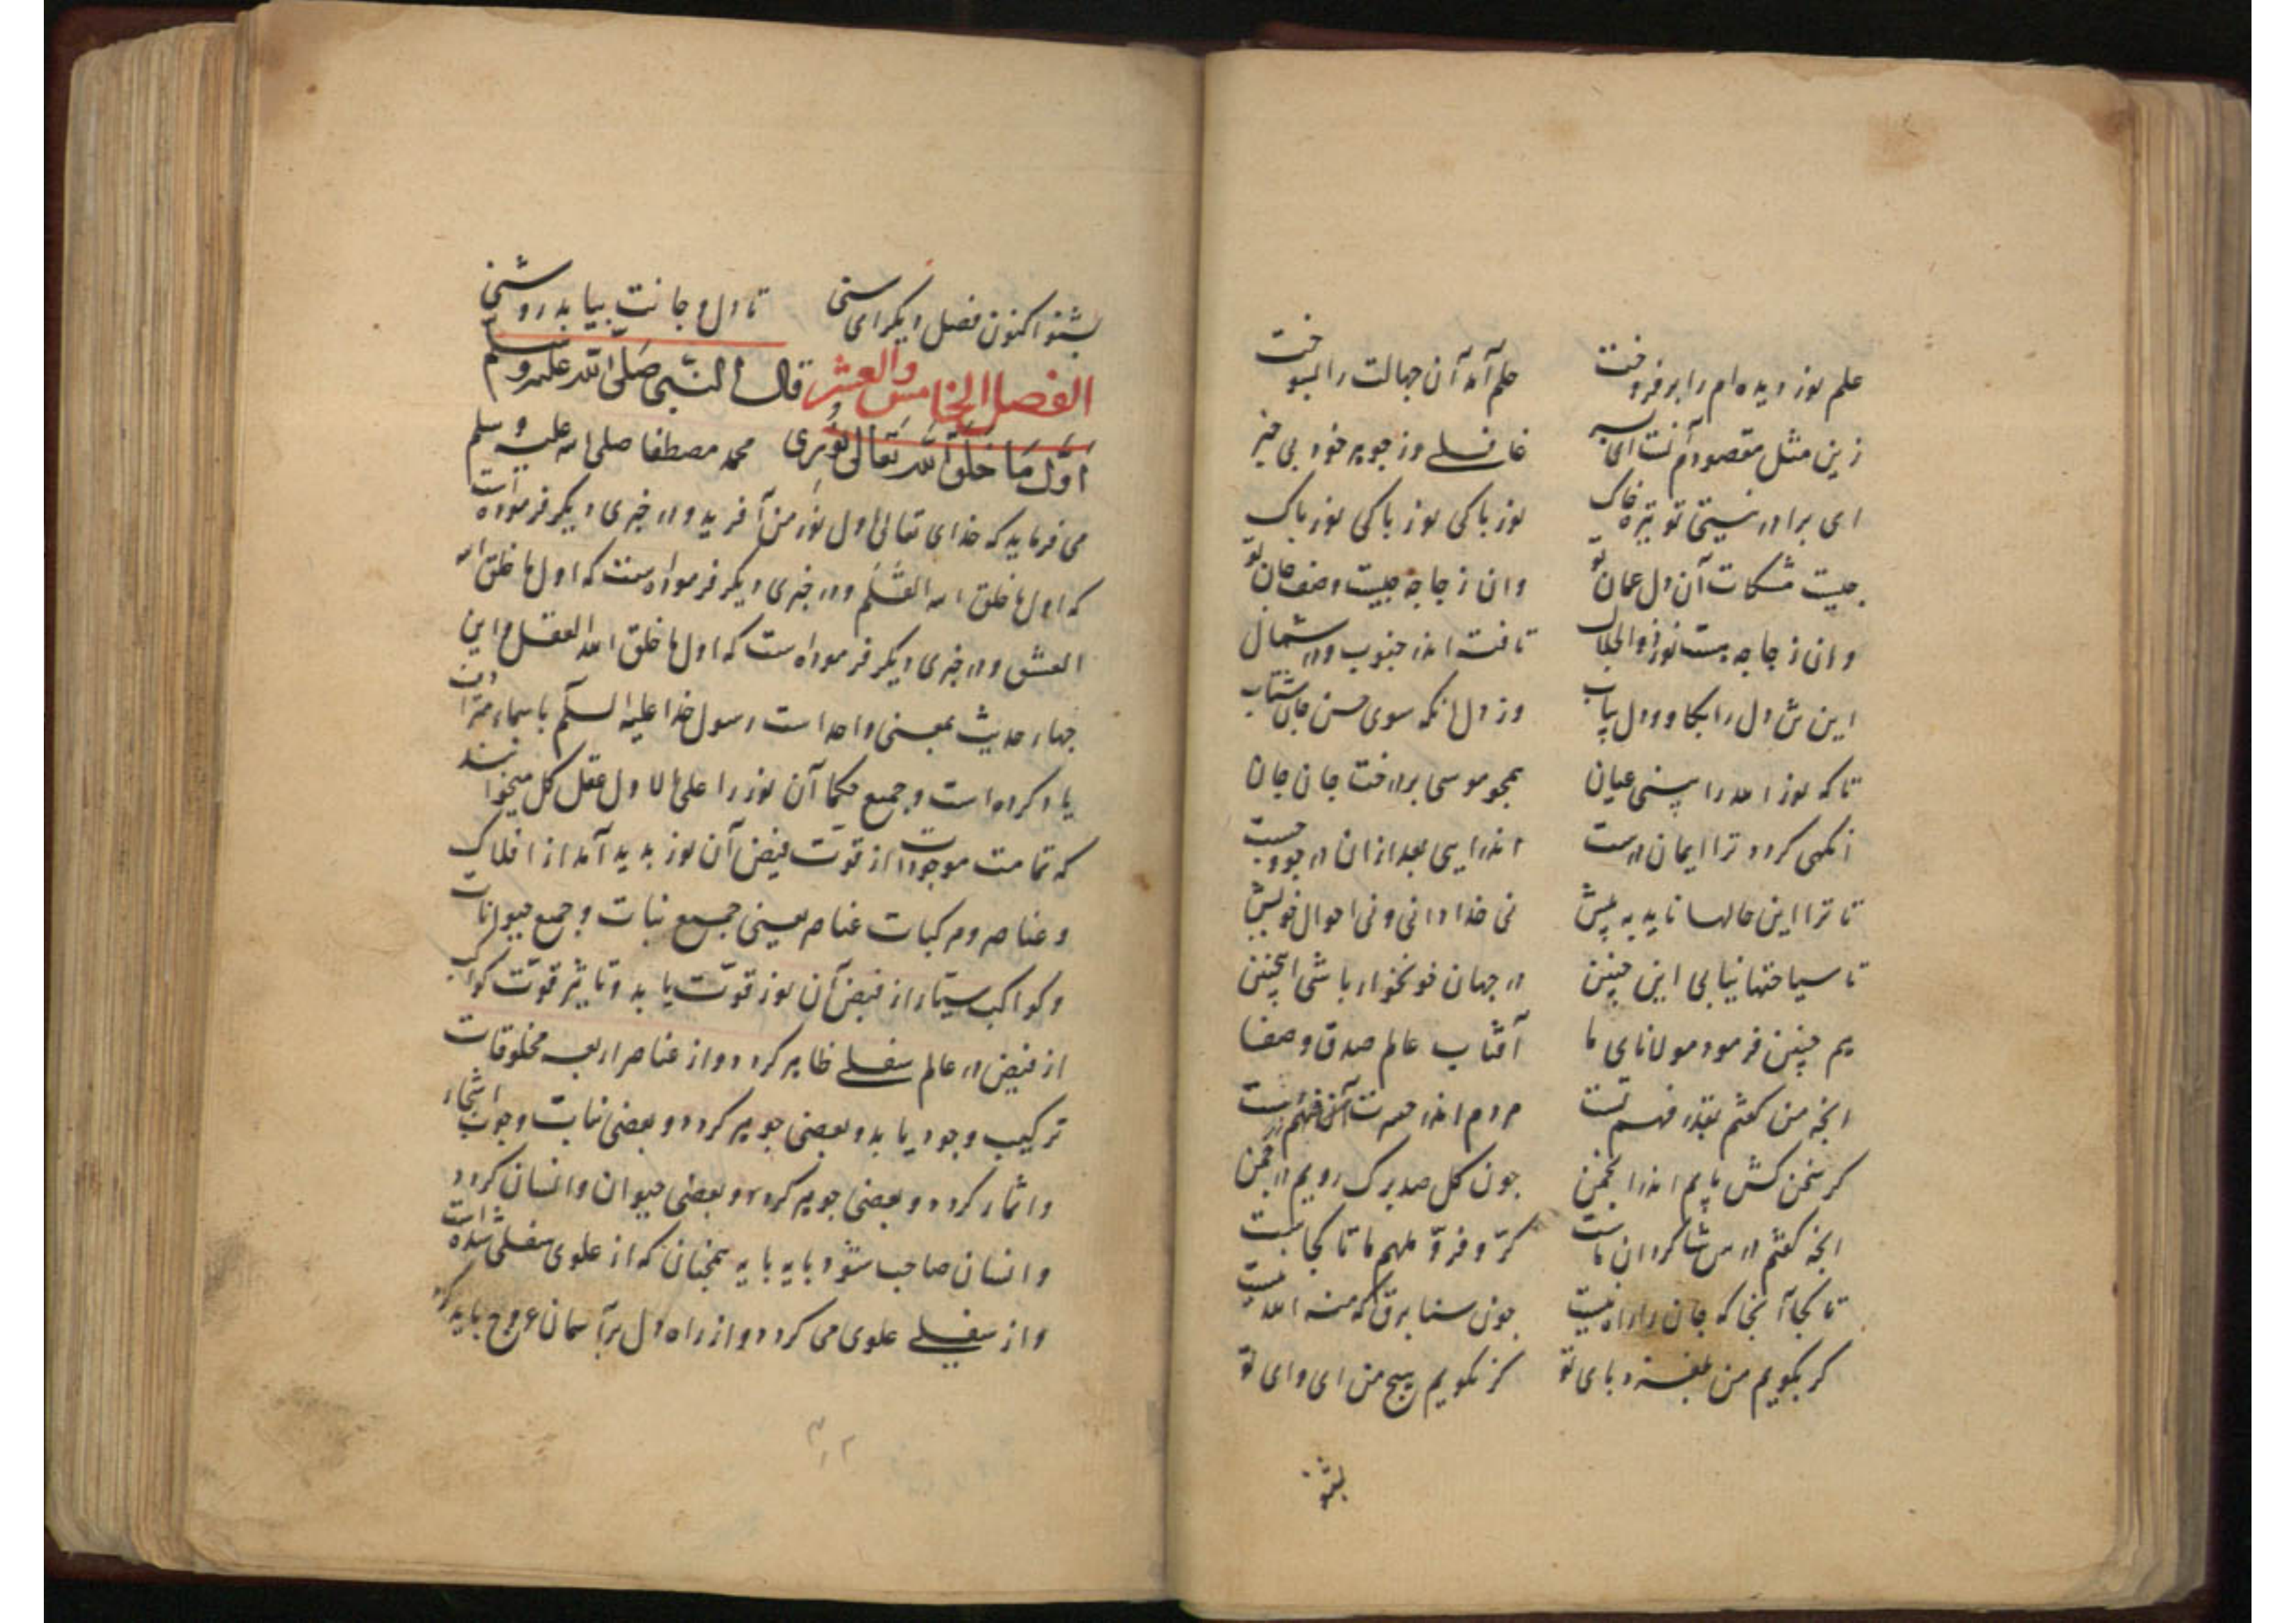 علم نور دیده‌ام را برفروخت حلم آمد آن جهالت را بسوخت
زین مثل مقصودم آنست ای پسر غافلے وز جوهر خود بی خبر
ای برادر نیستی تو تیره خاک نور پاکی نور پاکی نور پاک
چیست مشکات آن دل عمان تو وان زجاجه چیست وصف جان تو
وان زجاجه هست نور ذو الجلال تافت اندر جنوب و در شمال
این دل را بکاو و دل بیاب وز دل انکه سوی حسن جان شتاب
تا که نور الله را بینی عیان همچو موسی بر درخت جان جان
انکهی کردد ترا ایمان درست اندرایی بعد ازان در جود چست
تا ترا این حالها ناید به پیش نی خدا دانی و نی احوال خویش
تا سیاحتها نیابی این چنین در جهان خونخوار باشی اینچنین
هم چنین فرمود مولانای ما آفتاب عالم صدق و صفا
انچه من کفتم بقدر فهم تست مردم اندر حسرت فهم درست
کر سخن کش یابم اندر انجمن چون کل صد برک رویم در چمن
انچه کفتم درس شاکردان ماست کرّ و فرّ ملهم ما تا کجاست
تا کجا آنجا که جان را راه نیست جون سنا برق که منه الله نیست
کر بکویم من بلغزد پای تو کر نکویم هیچ من ای وای تو
بشنو
بشنو اکنون فصل دیکر ای سنی تا دل و جانت بیابد روشنی
الفصل الخامس والعشر قال النبی صلی الله علیه وسلم
اول ما خلق الله تعالی نوری محمد مصطفا صلی الله علیه و سلم
می فرماید که خدای تعالی اول نور من آفرید و در خبری دیکر فرموده است
که اول ما خلق الله القلم و در خبری دیکر فرموده است که اول ما خلق الله
العشق و در خبری دیکر فرموده است که اول ما خلق الله العقل و این
جهار حدیث بمعنی واحد است رسول خدا علیه السلم باسماء مترادف
یاد کرده است و جمیع حکما آن نور را علی الاول عقل کل میخوانند
که تمامت موجودات از قوت فیض آن نور بدید آمد از افلاک
و عناصر و مرکبات عناصر یعنی جمیع نبات و جمیع حیوانات
و کواکب سیّار از فیض آن نور قوّت یابد و تاثیر قوّت کواکب
از فیض در عالم سفلے ظاهر کردد و از عناصر اربعه مخلوقات
ترکیب وجود یابد و بعضی جوهر کردد و بعضی نبات و حبوب اشجار
و اثمار کردد و بعضی جوهر کردد و بعضی حیوان و انسان کردد
و انسان صاحب شود پایه پایه همچنان که از علوی سفلی شده است
و از سفلے علوی می کردد و از راه دل بر آسمان عروج باید کرد